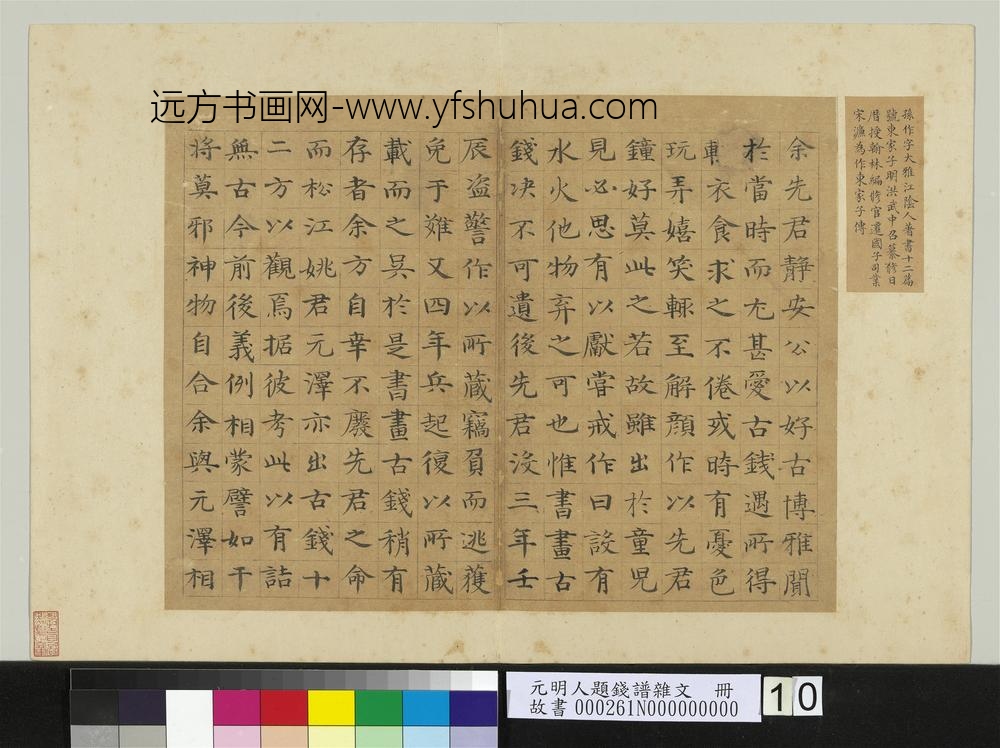 远方书画网-www.yfshuhua.com
孫作字大雅江陰人著書十二篇
號東家子明洪武中召纂修日
曆授翰林編修官遷國子司業
宋濂為作東家子傳
余先君靜安公以好古博雅聞
於當時而尤甚愛古錢遇所得
衣食求之不倦或時有憂色
玩弄嬉笑輒至解顏作以先君
鐘好莫此之若故雖出於童兒
見必思有以獻嘗戒作曰設有
水火他物弃之可也惟書畫古
錢決不可遺後先君沒三年壬
辰盜警作以所藏竊負而逃獲
免于難又四年兵起復以所藏
載而之吳於是書畫古錢稍有
存者余方自幸不廢先君之命
而松江姚君元澤亦出古錢十
二方以觀焉据彼考此以有詰
無古今前後義例相蒙譬如干
將莫邪神物自合余與元澤相
元明人題錢譜雜文 冊
故書 000261N000000000
10